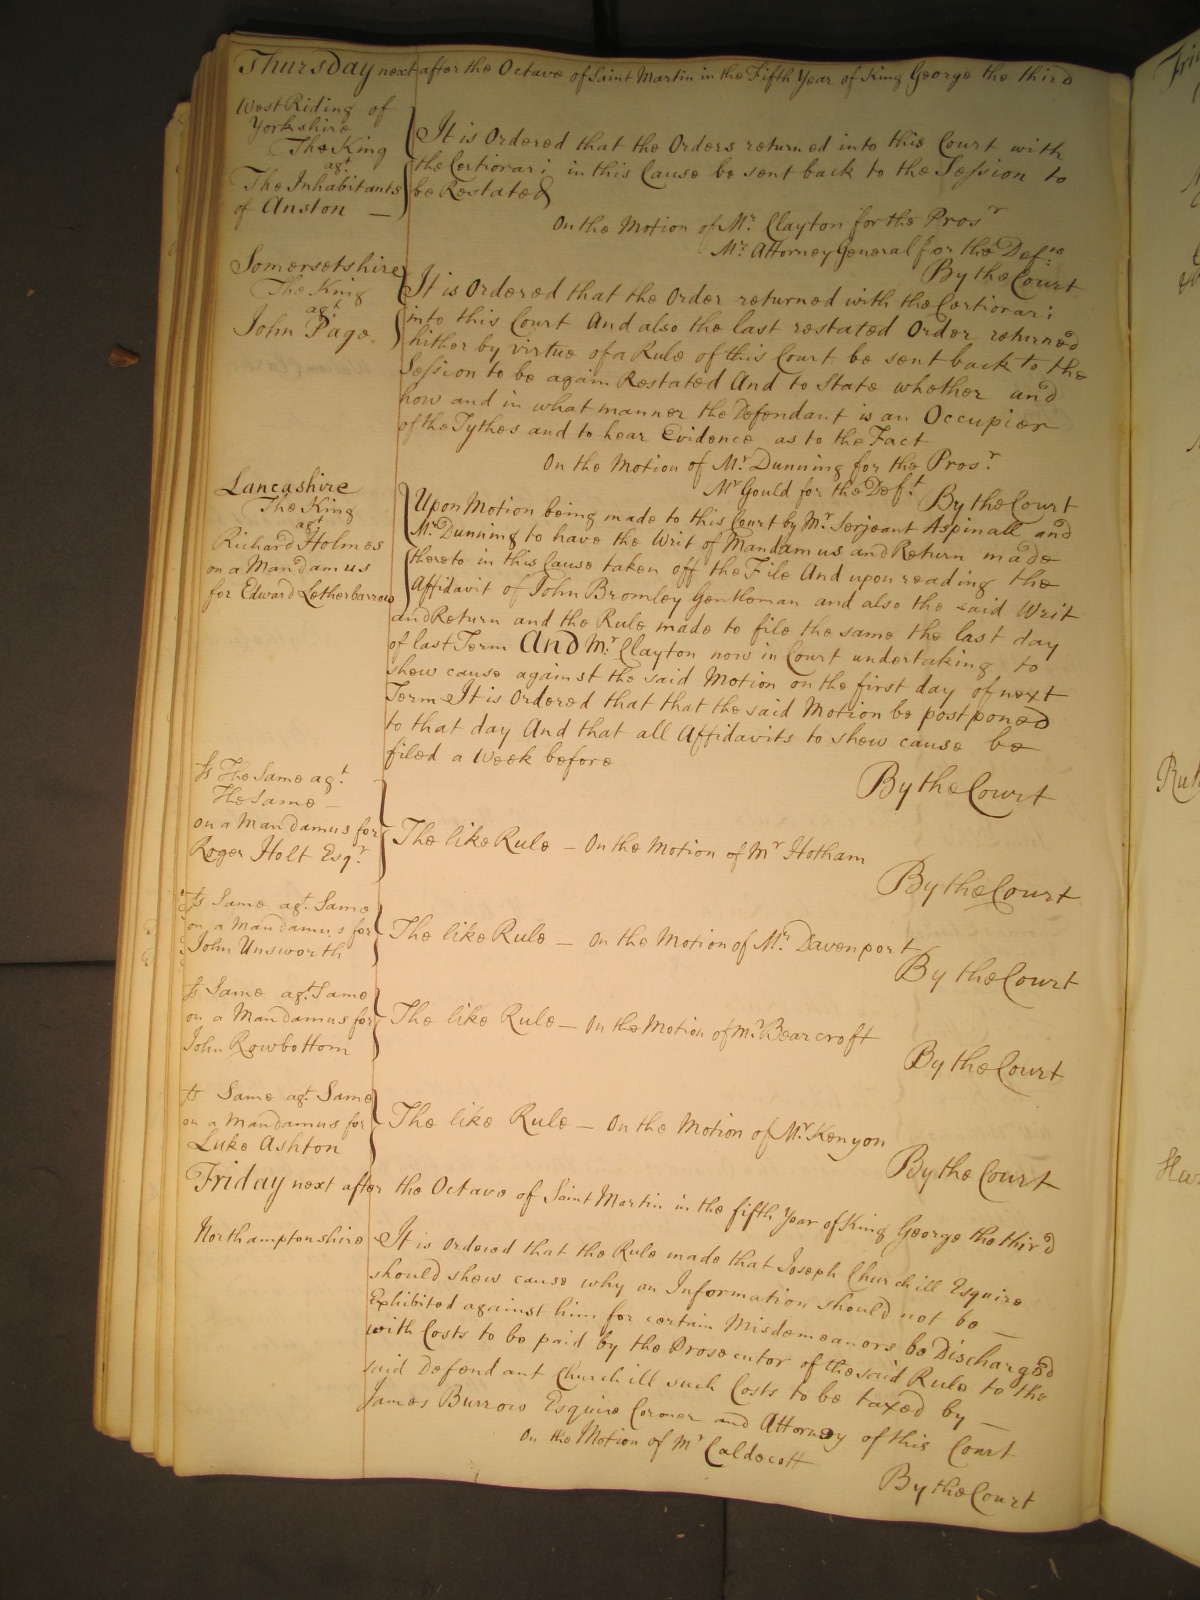 Thursday next after the Octave of Saint Martin in the Fifth Year of King George the third
West Riding of
Yorkshire
The King
agt.
The Inhabitants
of Anston —
It is Ordered that the Orders returned into this Court with
the Certiorari in this Cause be sent back to the Session to
be Restated
On the Motion of Mr. Clayton for the Prosr
Mr. Attorney General for the Defts.
By the Court
Somersetshire
The King
agt.
John Page.
It is Ordered that the Order returned with the Certiorari
into this Court And also the last restated Order returned
hither by virtue of a Rule of this Court be sent back to the
Session to be again Restated And to State whether and
how and in what manner the Defendant is an Occupier
of the Tythes and to hear Evidence as to the Fact
On the Motion of Mr. Dunning for the Prosr.
Mr Gould for the Deft.
By the Court
Lancashire
The King
agt.
Richard Holmes
on a Mandamus
for Edward Letherbarrow
Upon Motion being made to this Court by Mr. Serjeant Aspinall and
Mr. Dunning to have the Writ of Mandamus and Return made
thereto in this Cause taken off the File And upon reading the
Affidavit of John Bromley Gentleman and also the said Writ
and Return and the Rule made to file the same the last day
of last Term And Mr. Clayton now in Court undertaking to
shew cause against the said Motion on the first day of next
Term It is Ordered that that the said Motion be postponed
to that day And that all Affidavits to shew cause be
filed a Week before
By the Court
The Same agt.
The Same —
on a Mandamus for
Roger Holt Esqr.
The like Rule — On the Motion of Mr Hotham
By the Court
Same agt. Same
on a Mandamus for
John Unsworth
The like Rule — On the Motion of Mr. Davenport
By the Court
Same agt. Same
on a Mandamus for
John Rowbottom
The like Rule — On the Motion of Mr. Bearcroft
By the Court
Same agt. Same
on a Mandamus for
Luke Ashton
The like Rule — On the Motion of Mr. Kenyon
By the Court
Friday next after the Octave of Saint Martin in the fifth Year of King George the third
Northamptonshire
It is ordered that the Rule made that Joseph Churchill Esquire
should shew cause why an Information should not be —
Exhibited against him for certain Misdemeanors be Discharged
with Costs to be paid by the Prosecutor of the said Rule to the
said Defendant Churchill such Costs to be taxed by —
James Burrow Esquire Coroner and Attorney of this Court
On the Motion of Mr Caldecott
By the Court